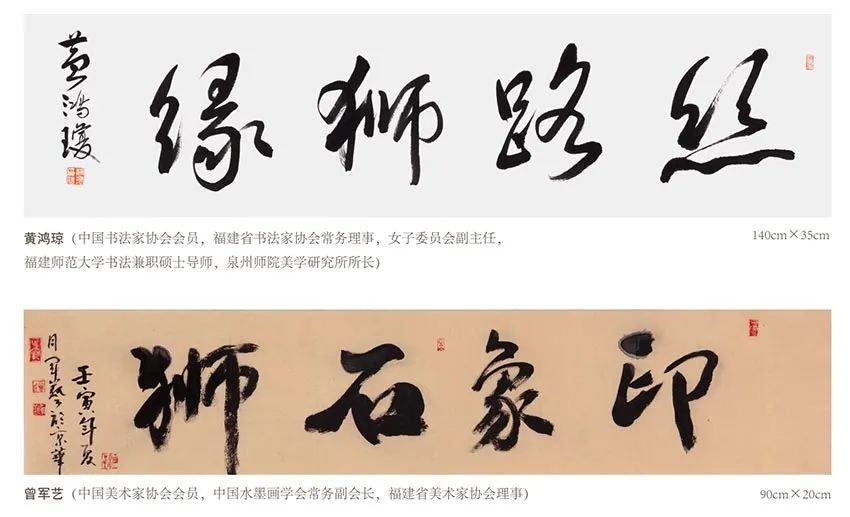 丝路狮缘
黄鸿瓊
黄鸿琼（中国书法家协会会员，福建省书法家协会常务理事，女子委员会副主任，
福建师范大学书法兼职硕士导师，泉州师院美学研究所所长）
140cm×35cm
印象石狮
壬寅年夏
月军艺於京華
曾军艺（中国美术家协会会员，中国水墨画学会常务副会长，福建省美术家协会理事）
90cm×20cm